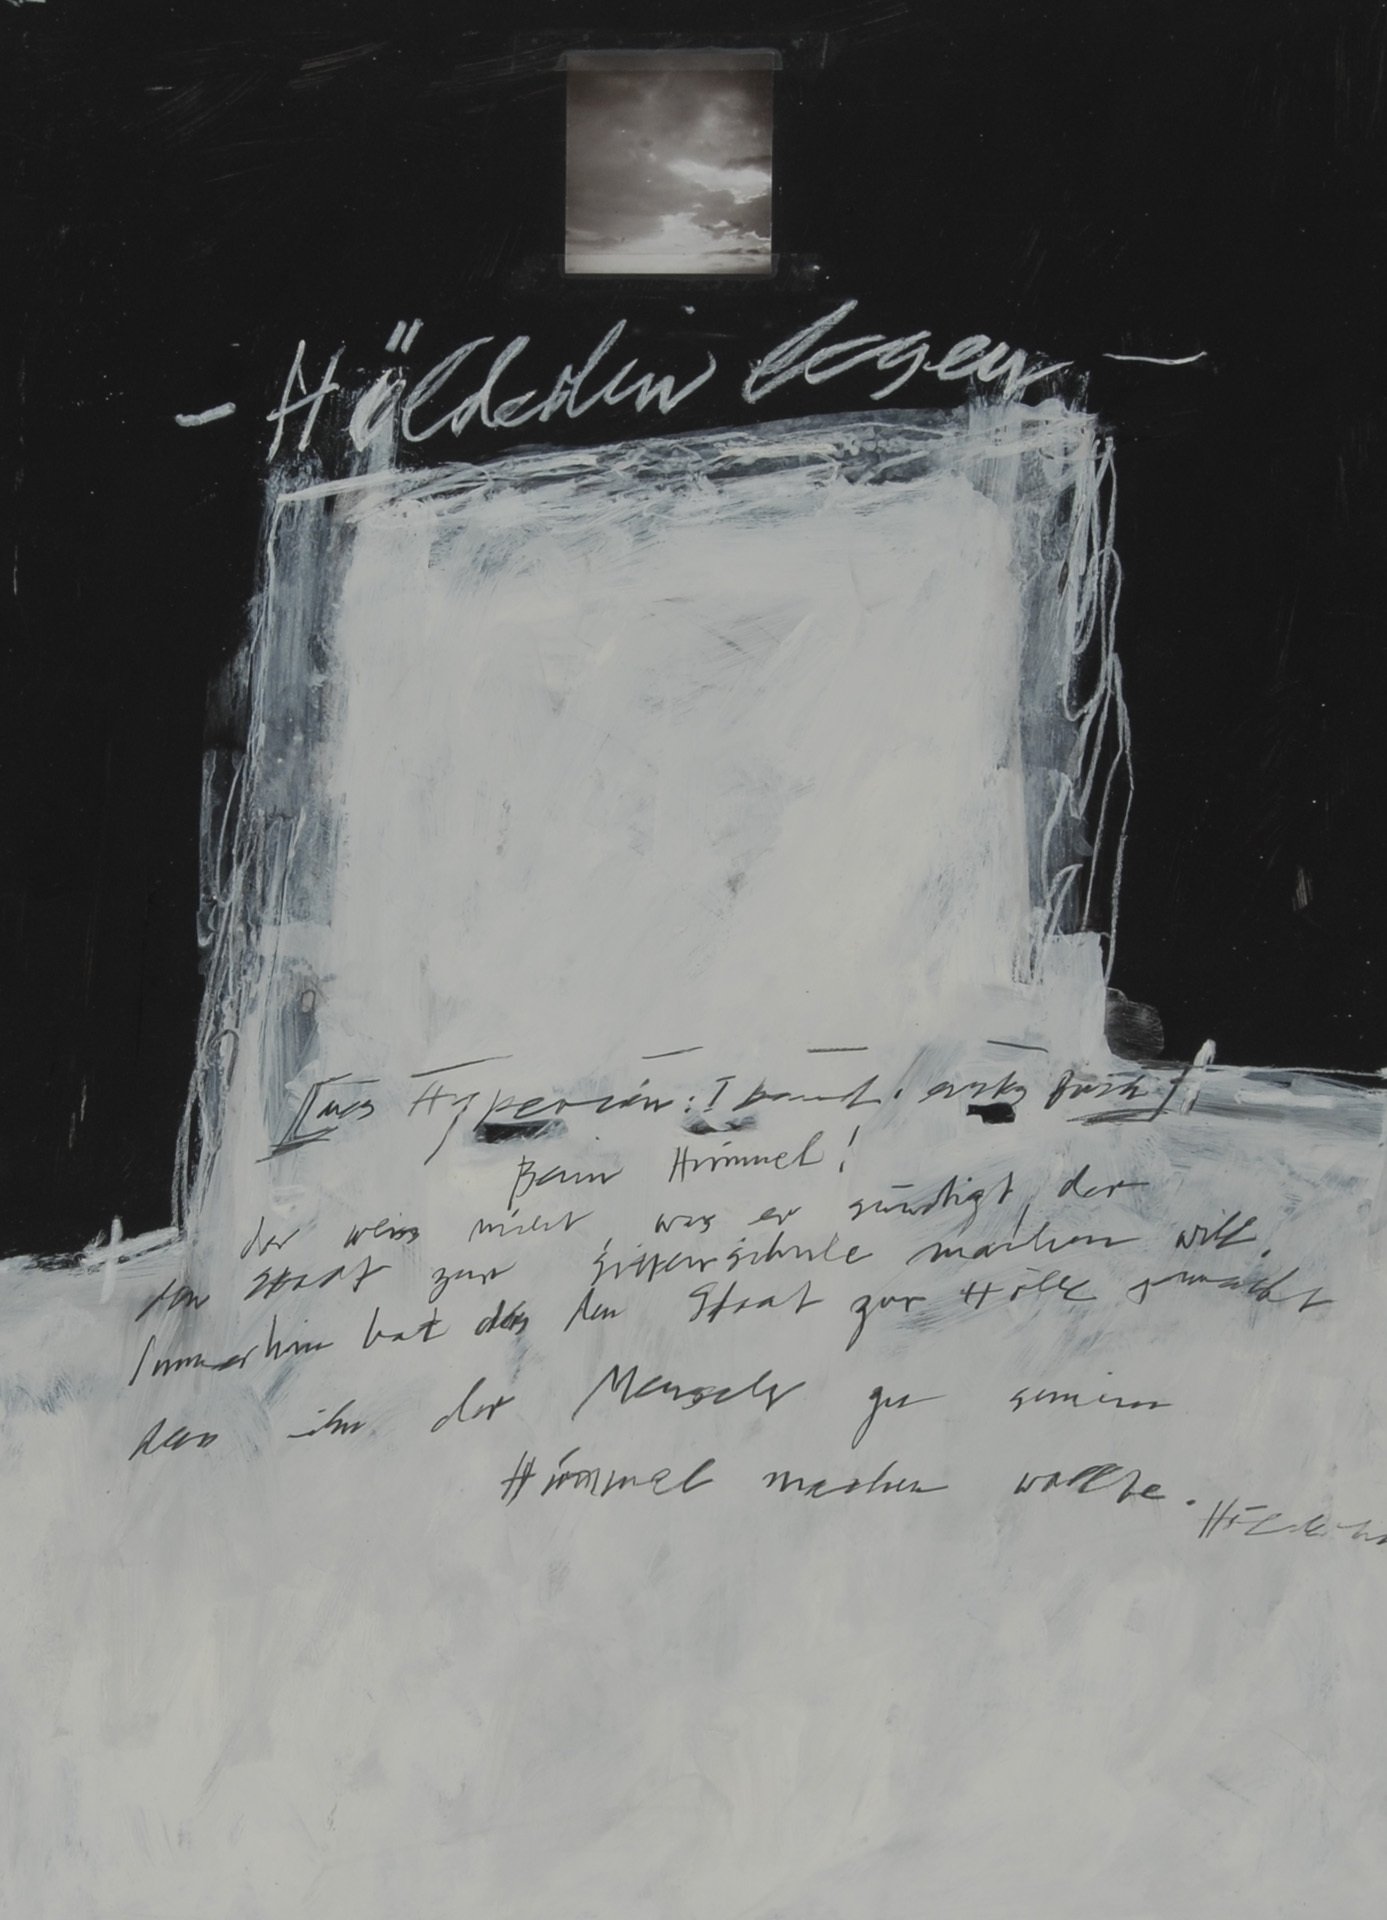 - Hölderlin lesen -
[aus Hyperion: I band. erstes Buch]
Beim Himmel!
der weiss nicht, was er sündigt, der
den Staat zur Sittenschule machen will.
Immerhin hat das den Staat zur Hölle gemacht
dass ihn der Mensch zu seinem
Himmel machen wollte.
Hölderlin